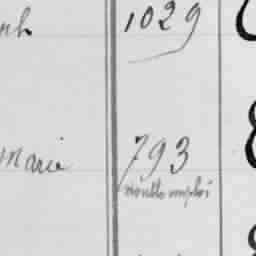 1029
Marie 793
double emploi